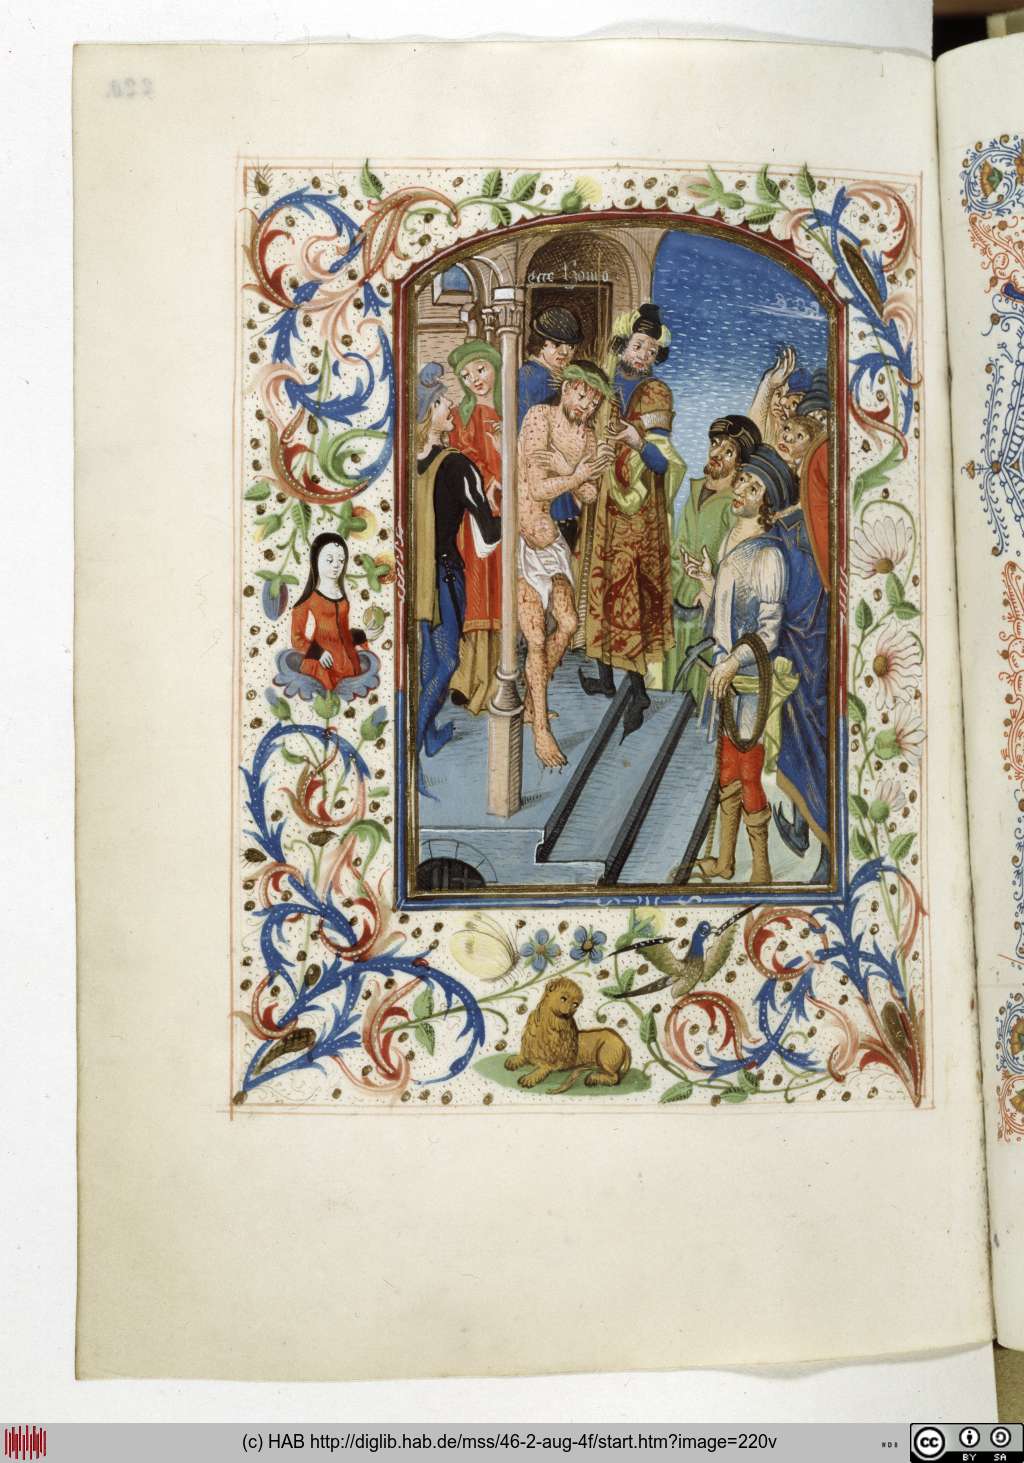 220.
ecce homo
(c) HAB http://diglib.hab.de/mss/46-2-aug-4f/start.htm?image=220v
cc
BY SA